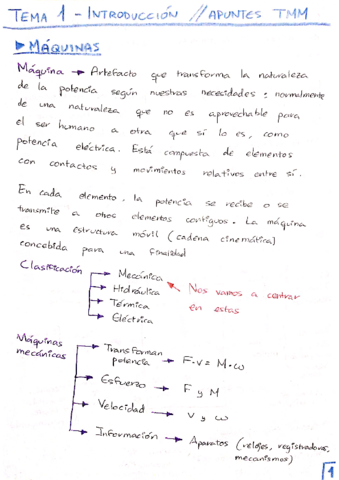 TEMA 1 - INTRODUCCIÓN // APUNTES TMM
▶ MÁQUINAS
Máquina → Artefacto que transforma la naturaleza
de la potencia según nuestras necesidades: normalmente
de una naturaleza que no es aprovechable para
el ser humano a otra que sí lo es, como
potencia eléctrica. Está compuesta de elementos
con contactos y movimientos relativos entre sí.
En cada elemento, la potencia se recibe o se
transmite a otros elementos contiguos. La máquina
es una estructura móvil (cadena cinemática)
concebida para una finalidad
Clasificación → Mecánica
→ Hidráulica
→ Térmica
→ Eléctrica
Nos vamos a centrar
en estas
Máquinas
mecánicas
→ Transforman
potencia → F·v = M·ω
→ Esfuerzo → F y M
→ Velocidad → v y ω
→ Información → Aparatos (relojes, registradoras,
mecanismos)
1